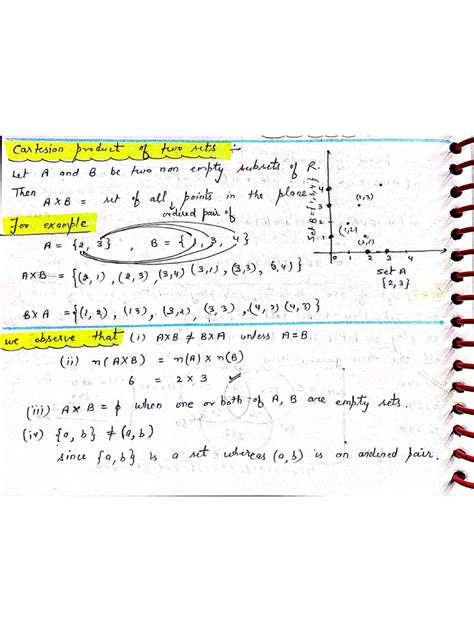 Cartesian product of two sets :-
Let A and B be two non empty subsets of R.
Then
A×B = set of all points in the plane
ordered pair of
For example
A = {2, 3} , B = {1, 3, 4}
A×B = {(2,1), (2,3), (3,4) (3,1), (3,3), (3,4)}
B×A = {(1,2), (13), (3,2), (3,3), (4,2) (4,3)}
Set B = {1,3,4}
4
3
2
1
(2,3)
(1,2)
(2,1)
1 2 3 4
Set A
{2,3}
we observe that (i) A×B ≠ B×A unless A=B
(ii) n(A×B) = n(A) × n(B)
6 = 2 × 3
(iii) A×B = ϕ when one or both of A, B are empty sets.
(iv) {a, b} ≠ (a, b)
since {a, b} is a set whereas (a, b) is an ordered pair.